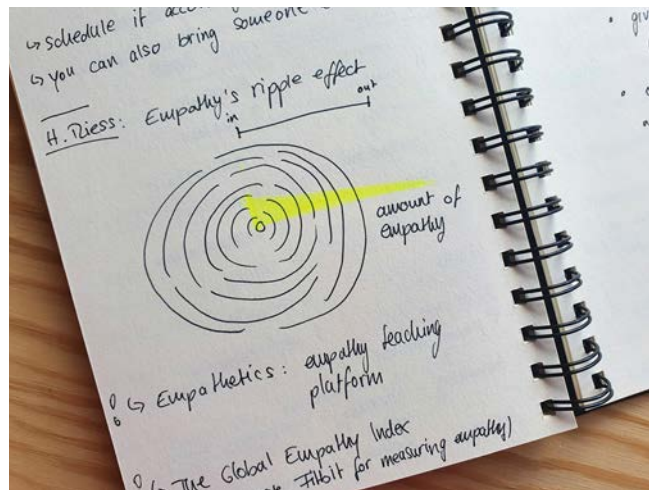 ↳ schedule it
↳ you can also bring someone
H. Riess: Empathy's ripple effect
in out
amount of
empathy
↳ Empathetics: empathy teaching
platform
↳ The Global Empathy Index
Fitbit for measuring empathy)
giv